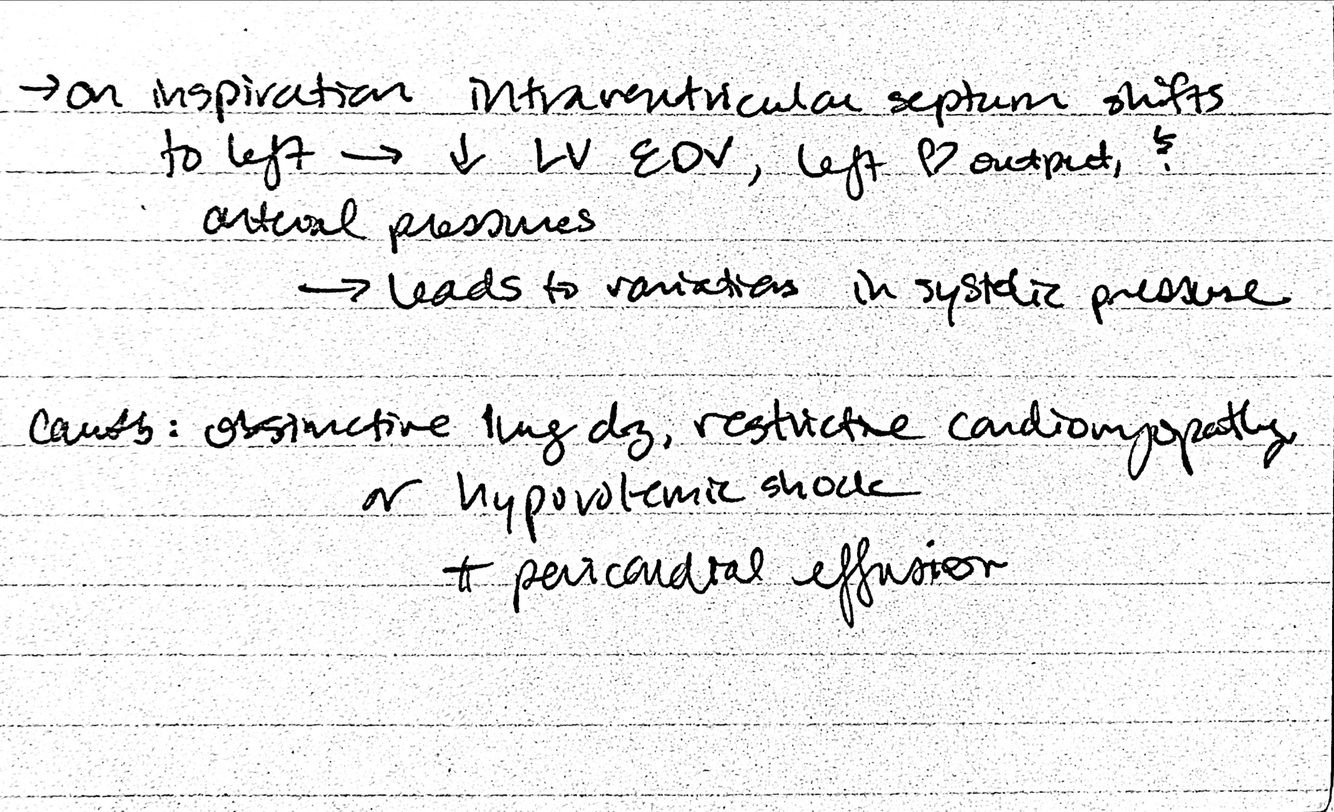 → on inspiration intraventricular septum shifts
to left → ↓ LV EDV, left ♡ output, &
arterial pressures
→ leads to variations in systolic pressure
causes: obstructive lung dz, restrictive cardiomyopathy
or hypovolemic shock
+ pericardial effusion